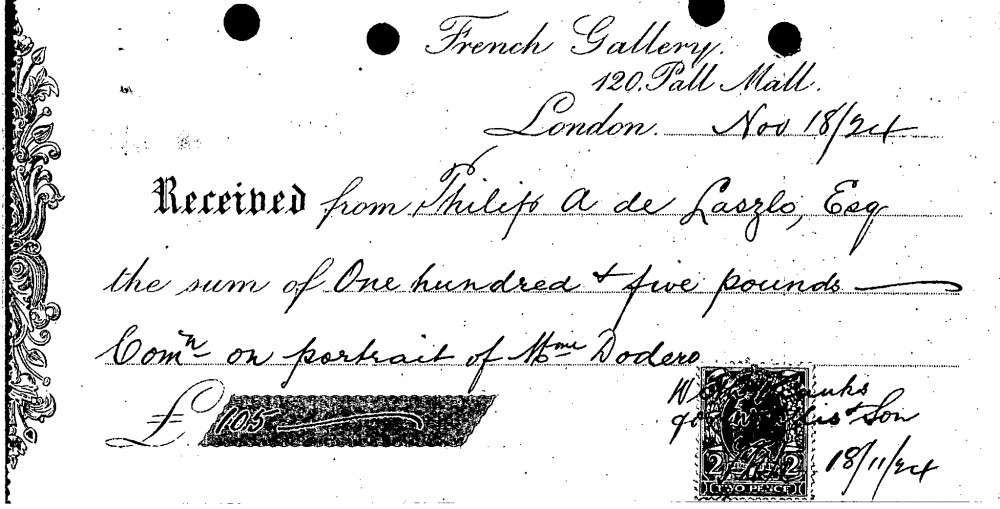 French Gallery.
120. Pall Mall.
London. Nov 18/24
Received from Philip A de Laszlo, Esq
the sum of One hundred & five pounds
Comn on portrait of Mme Dodero
£ 105
With thanks
Son
18/11/24
2 2
TWO PENCE